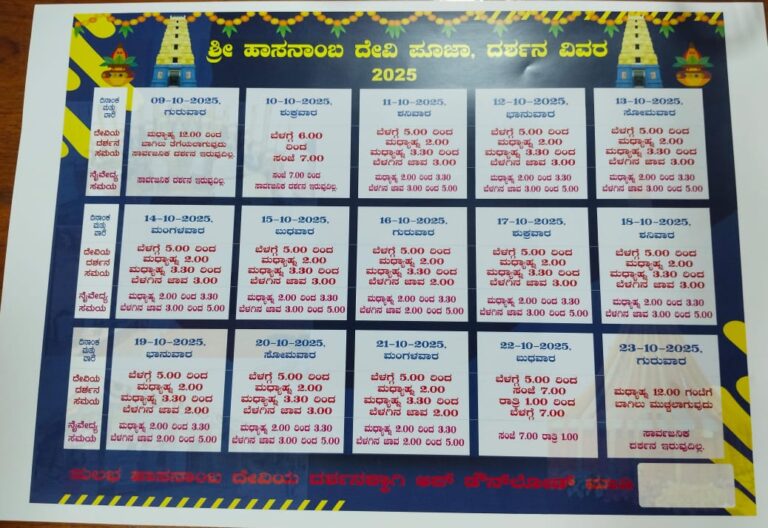 ಶ್ರೀ ಹಾಸನಾಂಬ ದೇವಿ ಪೂಜಾ, ದರ್ಶನ ವಿವರ
2025
ದಿನಾಂಕ
ಮತ್ತು
ವಾರ
ದೇವಿಯ
ದರ್ಶನ
ಸಮಯ
ನೈವೇದ್ಯ
ಸಮಯ
09-10-2025,
ಗುರುವಾರ
ಮಧ್ಯಾಹ್ನ 12.00 ರಿಂದ
ಬಾಗಿಲು ತೆಗೆಯಲಾಗುವುದು
ಸಾರ್ವಜನಿಕ ದರ್ಶನ ಇರುವುದಿಲ್ಲ
ಸಾರ್ವಜನಿಕ ದರ್ಶನ ಇರುವುದಿಲ್ಲ
10-10-2025,
ಶುಕ್ರವಾರ
ಬೆಳಗ್ಗೆ 6.00
ರಿಂದ
ಸಂಜೆ 7.00
ಸಂಜೆ 7.00 ರಿಂದ
ಸಾರ್ವಜನಿಕ ದರ್ಶನ ಇರುವುದಿಲ್ಲ
11-10-2025,
ಶನಿವಾರ
ಬೆಳಗ್ಗೆ 5.00 ರಿಂದ
ಮಧ್ಯಾಹ್ನ 2.00
ಮಧ್ಯಾಹ್ನ 3.30 ರಿಂದ
ಬೆಳಗಿನ ಜಾವ 3.00
ಮಧ್ಯಾಹ್ನ 2.00 ರಿಂದ 3.30
ಬೆಳಗಿನ ಜಾವ 3.00 ರಿಂದ 5.00
12-10-2025,
ಭಾನುವಾರ
ಬೆಳಗ್ಗೆ 5.00 ರಿಂದ
ಮಧ್ಯಾಹ್ನ 2.00
ಮಧ್ಯಾಹ್ನ 3.30 ರಿಂದ
ಬೆಳಗಿನ ಜಾವ 3.00
ಮಧ್ಯಾಹ್ನ 2.00 ರಿಂದ 3.30
ಬೆಳಗಿನ ಜಾವ 3.00 ರಿಂದ 5.00
13-10-2025,
ಸೋಮವಾರ
ಬೆಳಗ್ಗೆ 5.00 ರಿಂದ
ಮಧ್ಯಾಹ್ನ 2.00
ಮಧ್ಯಾಹ್ನ 3.30 ರಿಂದ
ಬೆಳಗಿನ ಜಾವ 3.00
ಮಧ್ಯಾಹ್ನ 2.00 ರಿಂದ 3.30
ಬೆಳಗಿನ ಜಾವ 3.00 ರಿಂದ 5.00
ದಿನಾಂಕ
ಮತ್ತು
ವಾರ
ದೇವಿಯ
ದರ್ಶನ
ಸಮಯ
ನೈವೇದ್ಯ
ಸಮಯ
14-10-2025,
ಮಂಗಳವಾರ
ಬೆಳಗ್ಗೆ 5.00 ರಿಂದ
ಮಧ್ಯಾಹ್ನ 2.00
ಮಧ್ಯಾಹ್ನ 3.30 ರಿಂದ
ಬೆಳಗಿನ ಜಾವ 3.00
ಮಧ್ಯಾಹ್ನ 2.00 ರಿಂದ 3.30
ಬೆಳಗಿನ ಜಾವ 3.00 ರಿಂದ 5.00
15-10-2025,
ಬುಧವಾರ
ಬೆಳಗ್ಗೆ 5.00 ರಿಂದ
ಮಧ್ಯಾಹ್ನ 2.00
ಮಧ್ಯಾಹ್ನ 3.30 ರಿಂದ
ಬೆಳಗಿನ ಜಾವ 3.00
ಮಧ್ಯಾಹ್ನ 2.00 ರಿಂದ 3.30
ಬೆಳಗಿನ ಜಾವ 3.00 ರಿಂದ 5.00
16-10-2025,
ಗುರುವಾರ
ಬೆಳಗ್ಗೆ 5.00 ರಿಂದ
ಮಧ್ಯಾಹ್ನ 2.00
ಮಧ್ಯಾಹ್ನ 3.30 ರಿಂದ
ಬೆಳಗಿನ ಜಾವ 3.00
ಮಧ್ಯಾಹ್ನ 2.00 ರಿಂದ 3.30
ಬೆಳಗಿನ ಜಾವ 3.00 ರಿಂದ 5.00
17-10-2025,
ಶುಕ್ರವಾರ
ಬೆಳಗ್ಗೆ 5.00 ರಿಂದ
ಮಧ್ಯಾಹ್ನ 2.00
ಮಧ್ಯಾಹ್ನ 3.30 ರಿಂದ
ಬೆಳಗಿನ ಜಾವ 3.00
ಮಧ್ಯಾಹ್ನ 2.00 ರಿಂದ 3.30
ಬೆಳಗಿನ ಜಾವ 3.00 ರಿಂದ 5.00
18-10-2025,
ಶನಿವಾರ
ಬೆಳಗ್ಗೆ 5.00 ರಿಂದ
ಮಧ್ಯಾಹ್ನ 2.00
ಮಧ್ಯಾಹ್ನ 3.30 ರಿಂದ
ಬೆಳಗಿನ ಜಾವ 3.00
ಮಧ್ಯಾಹ್ನ 2.00 ರಿಂದ 3.30
ಬೆಳಗಿನ ಜಾವ 3.00 ರಿಂದ 5.00
ದಿನಾಂಕ
ಮತ್ತು
ವಾರ
ದೇವಿಯ
ದರ್ಶನ
ಸಮಯ
ನೈವೇದ್ಯ
ಸಮಯ
19-10-2025,
ಭಾನುವಾರ
ಬೆಳಗ್ಗೆ 5.00 ರಿಂದ
ಮಧ್ಯಾಹ್ನ 2.00
ಮಧ್ಯಾಹ್ನ 3.30 ರಿಂದ
ಬೆಳಗಿನ ಜಾವ 2.00
ಮಧ್ಯಾಹ್ನ 2.00 ರಿಂದ 3.30
ಬೆಳಗಿನ ಜಾವ 2.00 ರಿಂದ 5.00
20-10-2025,
ಸೋಮವಾರ
ಬೆಳಗ್ಗೆ 5.00 ರಿಂದ
ಮಧ್ಯಾಹ್ನ 2.00
ಮಧ್ಯಾಹ್ನ 3.30 ರಿಂದ
ಬೆಳಗಿನ ಜಾವ 3.00
ಮಧ್ಯಾಹ್ನ 2.00 ರಿಂದ 3.30
ಬೆಳಗಿನ ಜಾವ 3.00 ರಿಂದ 5.00
21-10-2025,
ಮಂಗಳವಾರ
ಬೆಳಗ್ಗೆ 5.00 ರಿಂದ
ಮಧ್ಯಾಹ್ನ 2.00
ಮಧ್ಯಾಹ್ನ 3.30 ರಿಂದ
ಬೆಳಗಿನ ಜಾವ 3.00
ಮಧ್ಯಾಹ್ನ 2.00 ರಿಂದ 3.30
ಬೆಳಗಿನ ಜಾವ 3.00 ರಿಂದ 5.00
22-10-2025,
ಬುಧವಾರ
ಬೆಳಗ್ಗೆ 5.00 ರಿಂದ
ಸಂಜೆ 7.00
ರಾತ್ರಿ 1.00 ರಿಂದ
ಬೆಳಗ್ಗೆ 7.00
ಸಂಜೆ 7.00 ರಾತ್ರಿ 1.00
23-10-2025,
ಗುರುವಾರ
ಮಧ್ಯಾಹ್ನ 12.00 ಗಂಟೆಗೆ
ಬಾಗಿಲು ಮುಚ್ಚಲಾಗುವುದು
ಸಾರ್ವಜನಿಕ
ದರ್ಶನ ಇರುವುದಿಲ್ಲ.
ಸುಲಭ ಹಾಸನಾಂಬ ದೇವಿಯ ದರ್ಶನಕ್ಕಾಗಿ ಆಪ್ ಡೌನ್‌ಲೋಡ್ ಮಾಡಿ